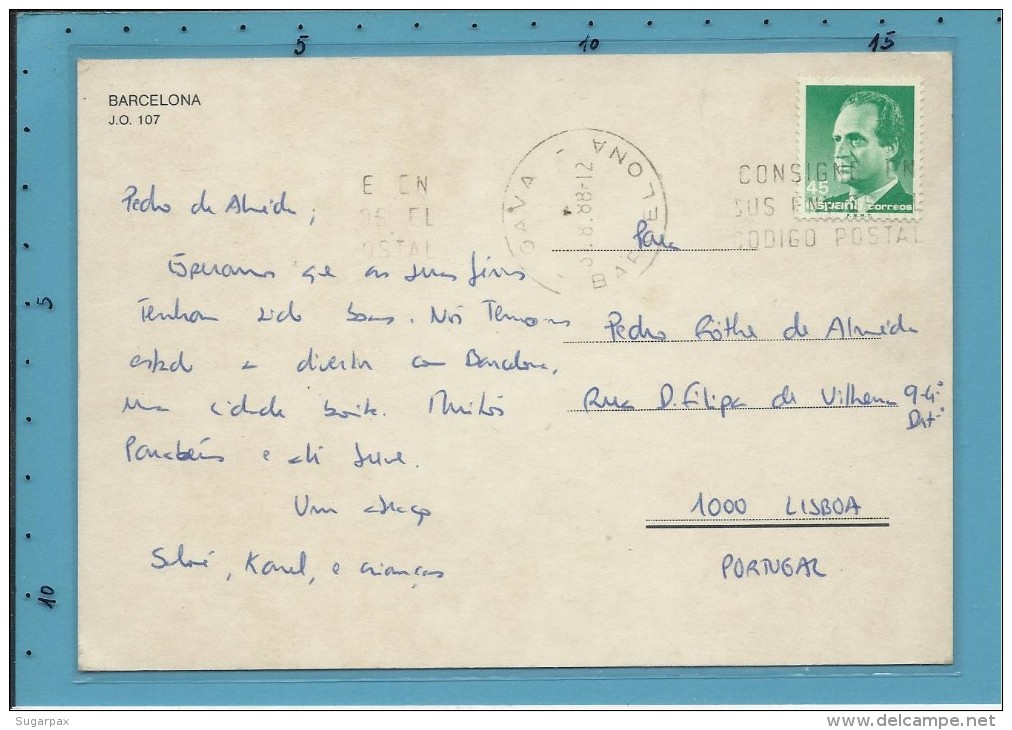 5
10
15
BARCELONA
J.O. 107
45
España correos
CONSIGNE EN
SUS ENV
CODIGO POSTAL
E EN
OS EL
OSTAL
GAVA
BARCELONA
8.88-12
Pedro de Almeida;
Esperamos que as suas férias
Tenham sido boas. Nós Temos
estado a divertir com Barcelona,
uma cidade bonita. Muitos
Parabéns e até
Um abraço
Karel, e crianças
Para
Pedro Röthe de Almeida
Rua D. Filipa de Vilhena 9-4º
Dtº
1000 LISBOA
PORTUGAL
5
10
Sugarpax
www.delcampe.net